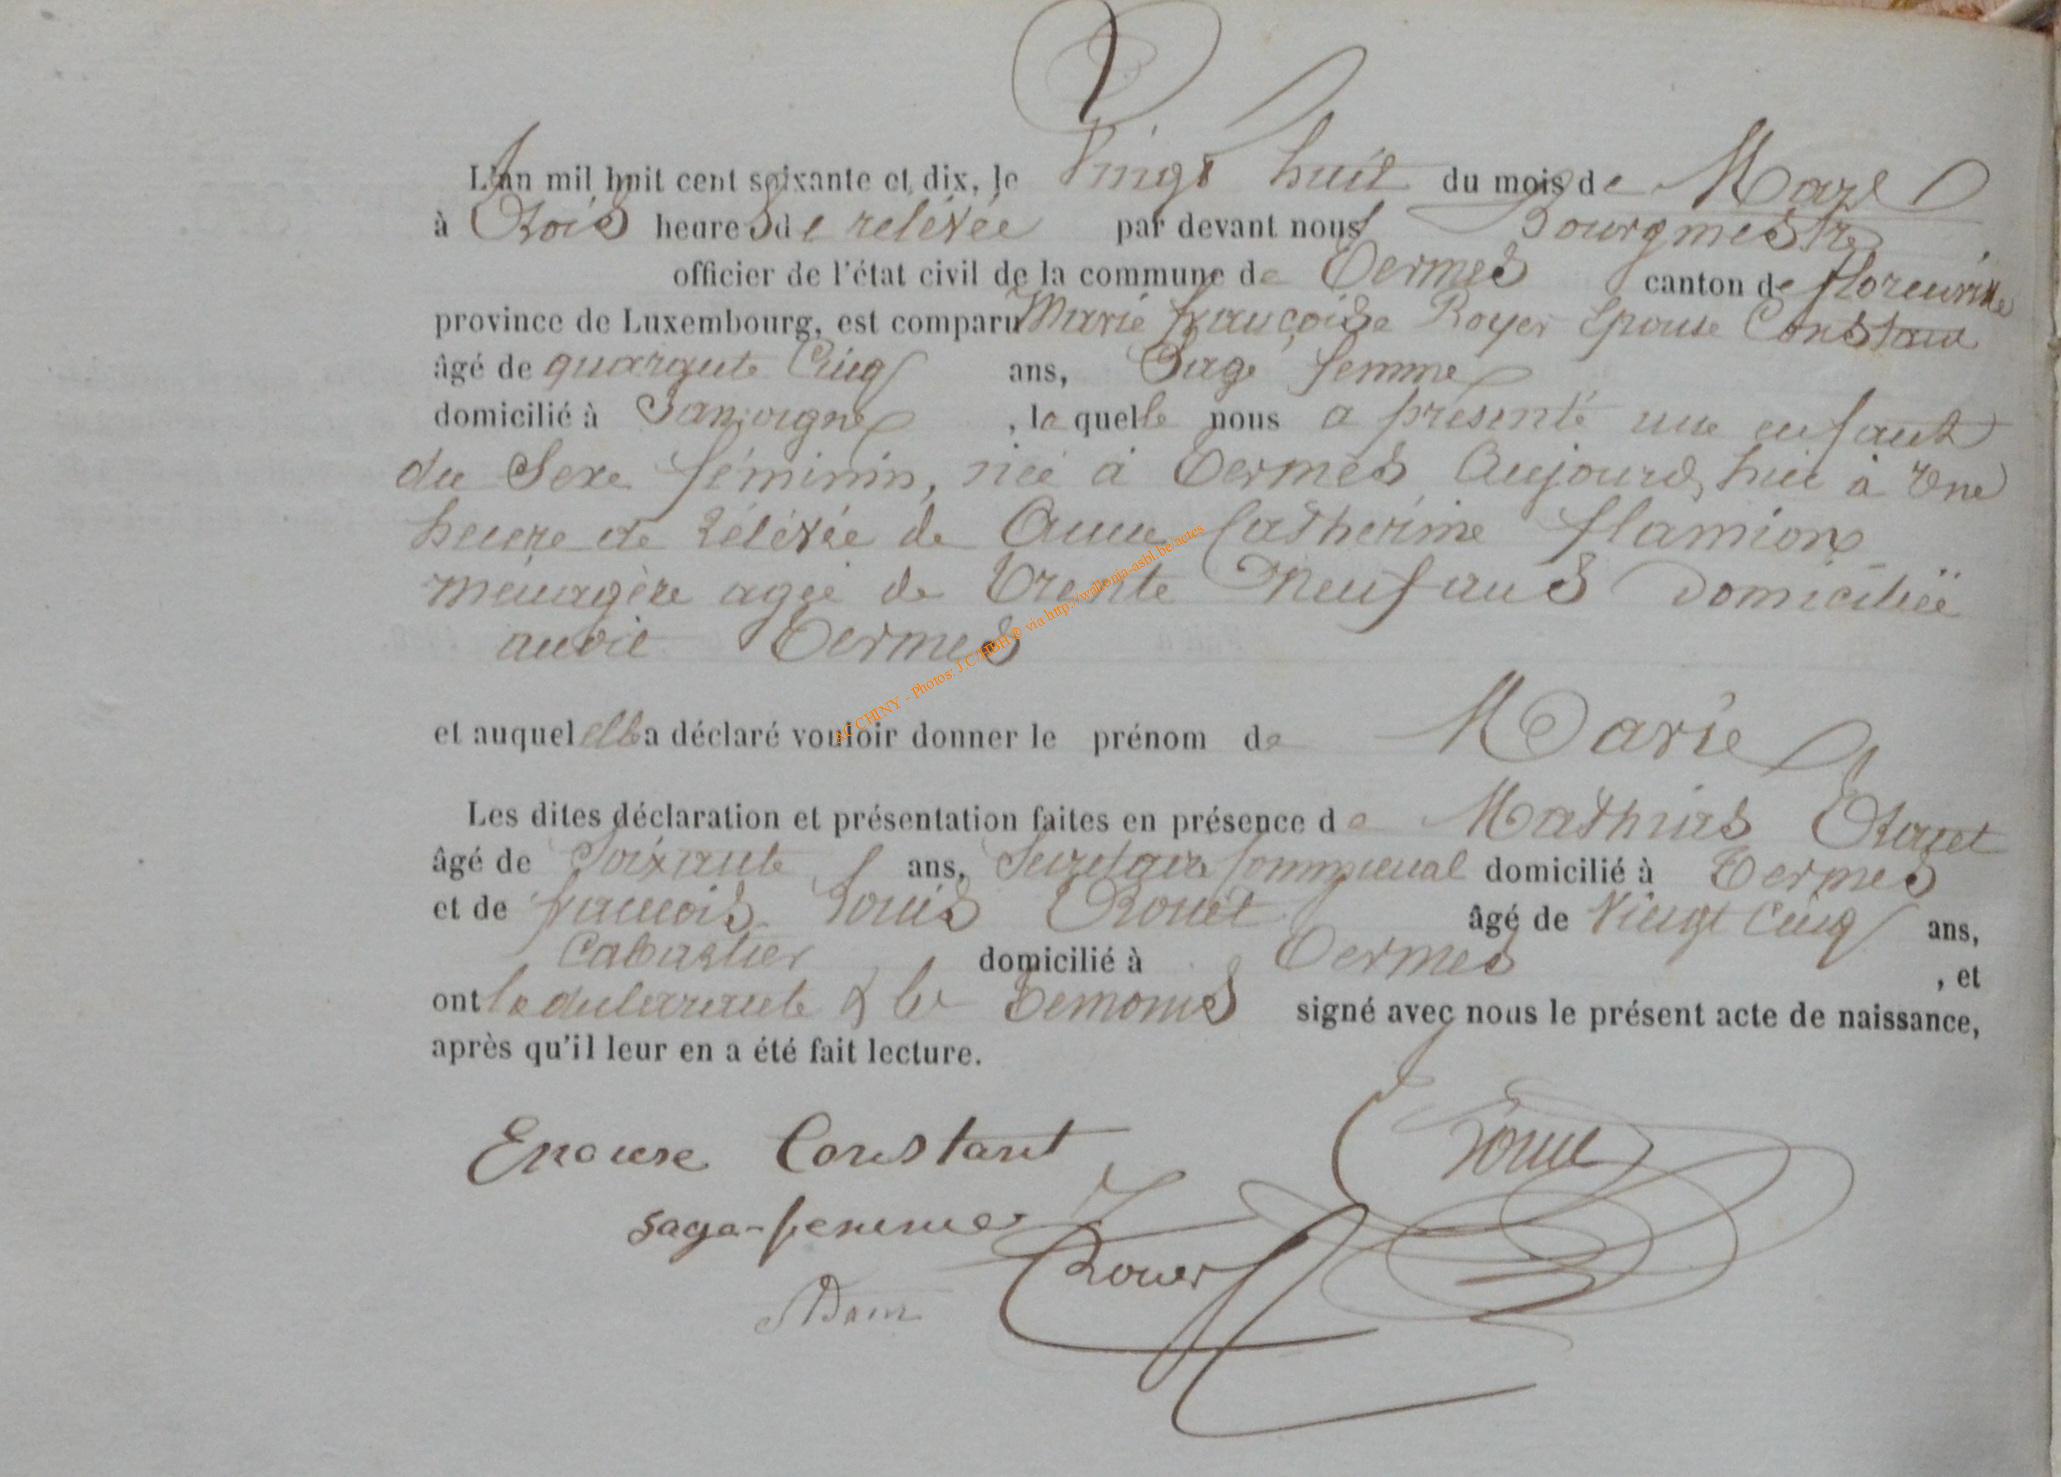 L'an mil huit cent soixante et dix, le Vingt huit du mois de Mars
à Trois heures de relévée par devant nous Bourgmestre
officier de l'état civil de la commune de Termes canton de florenville
province de Luxembourg, est comparu Marie françoise Royer Epouse Constant
âgé de quarante Cinq ans, Sage femme
domicilié à Jamoigne, laquelle nous a présenté une enfant
du Sexe féminin, née à Termes Aujourd,hui à Une
heure de rélévée de Anne Catherine flamion
ménagère agée de Trente Neuf ans Domiciliée
audit Termes
et auquel elle a déclaré vouloir donner le prénom de Marie
Les dites déclaration et présentation faites en présence de Mathias
âgé de Soixante ans, Secretair Communal domicilié à Termes
et de francois Louis Rouer âgé de Vingt Cinq ans,
Cabartier domicilié à Termes, et
ont la déclarante & les Temoins signé avec nous le présent acte de naissance,
après qu'il leur en a été fait lecture.
Epouse Constant
sage-femme
Rouer
Adam
AC CHINY - Photos: J.C. HBH © via http://wallonia-asbl.be/actes